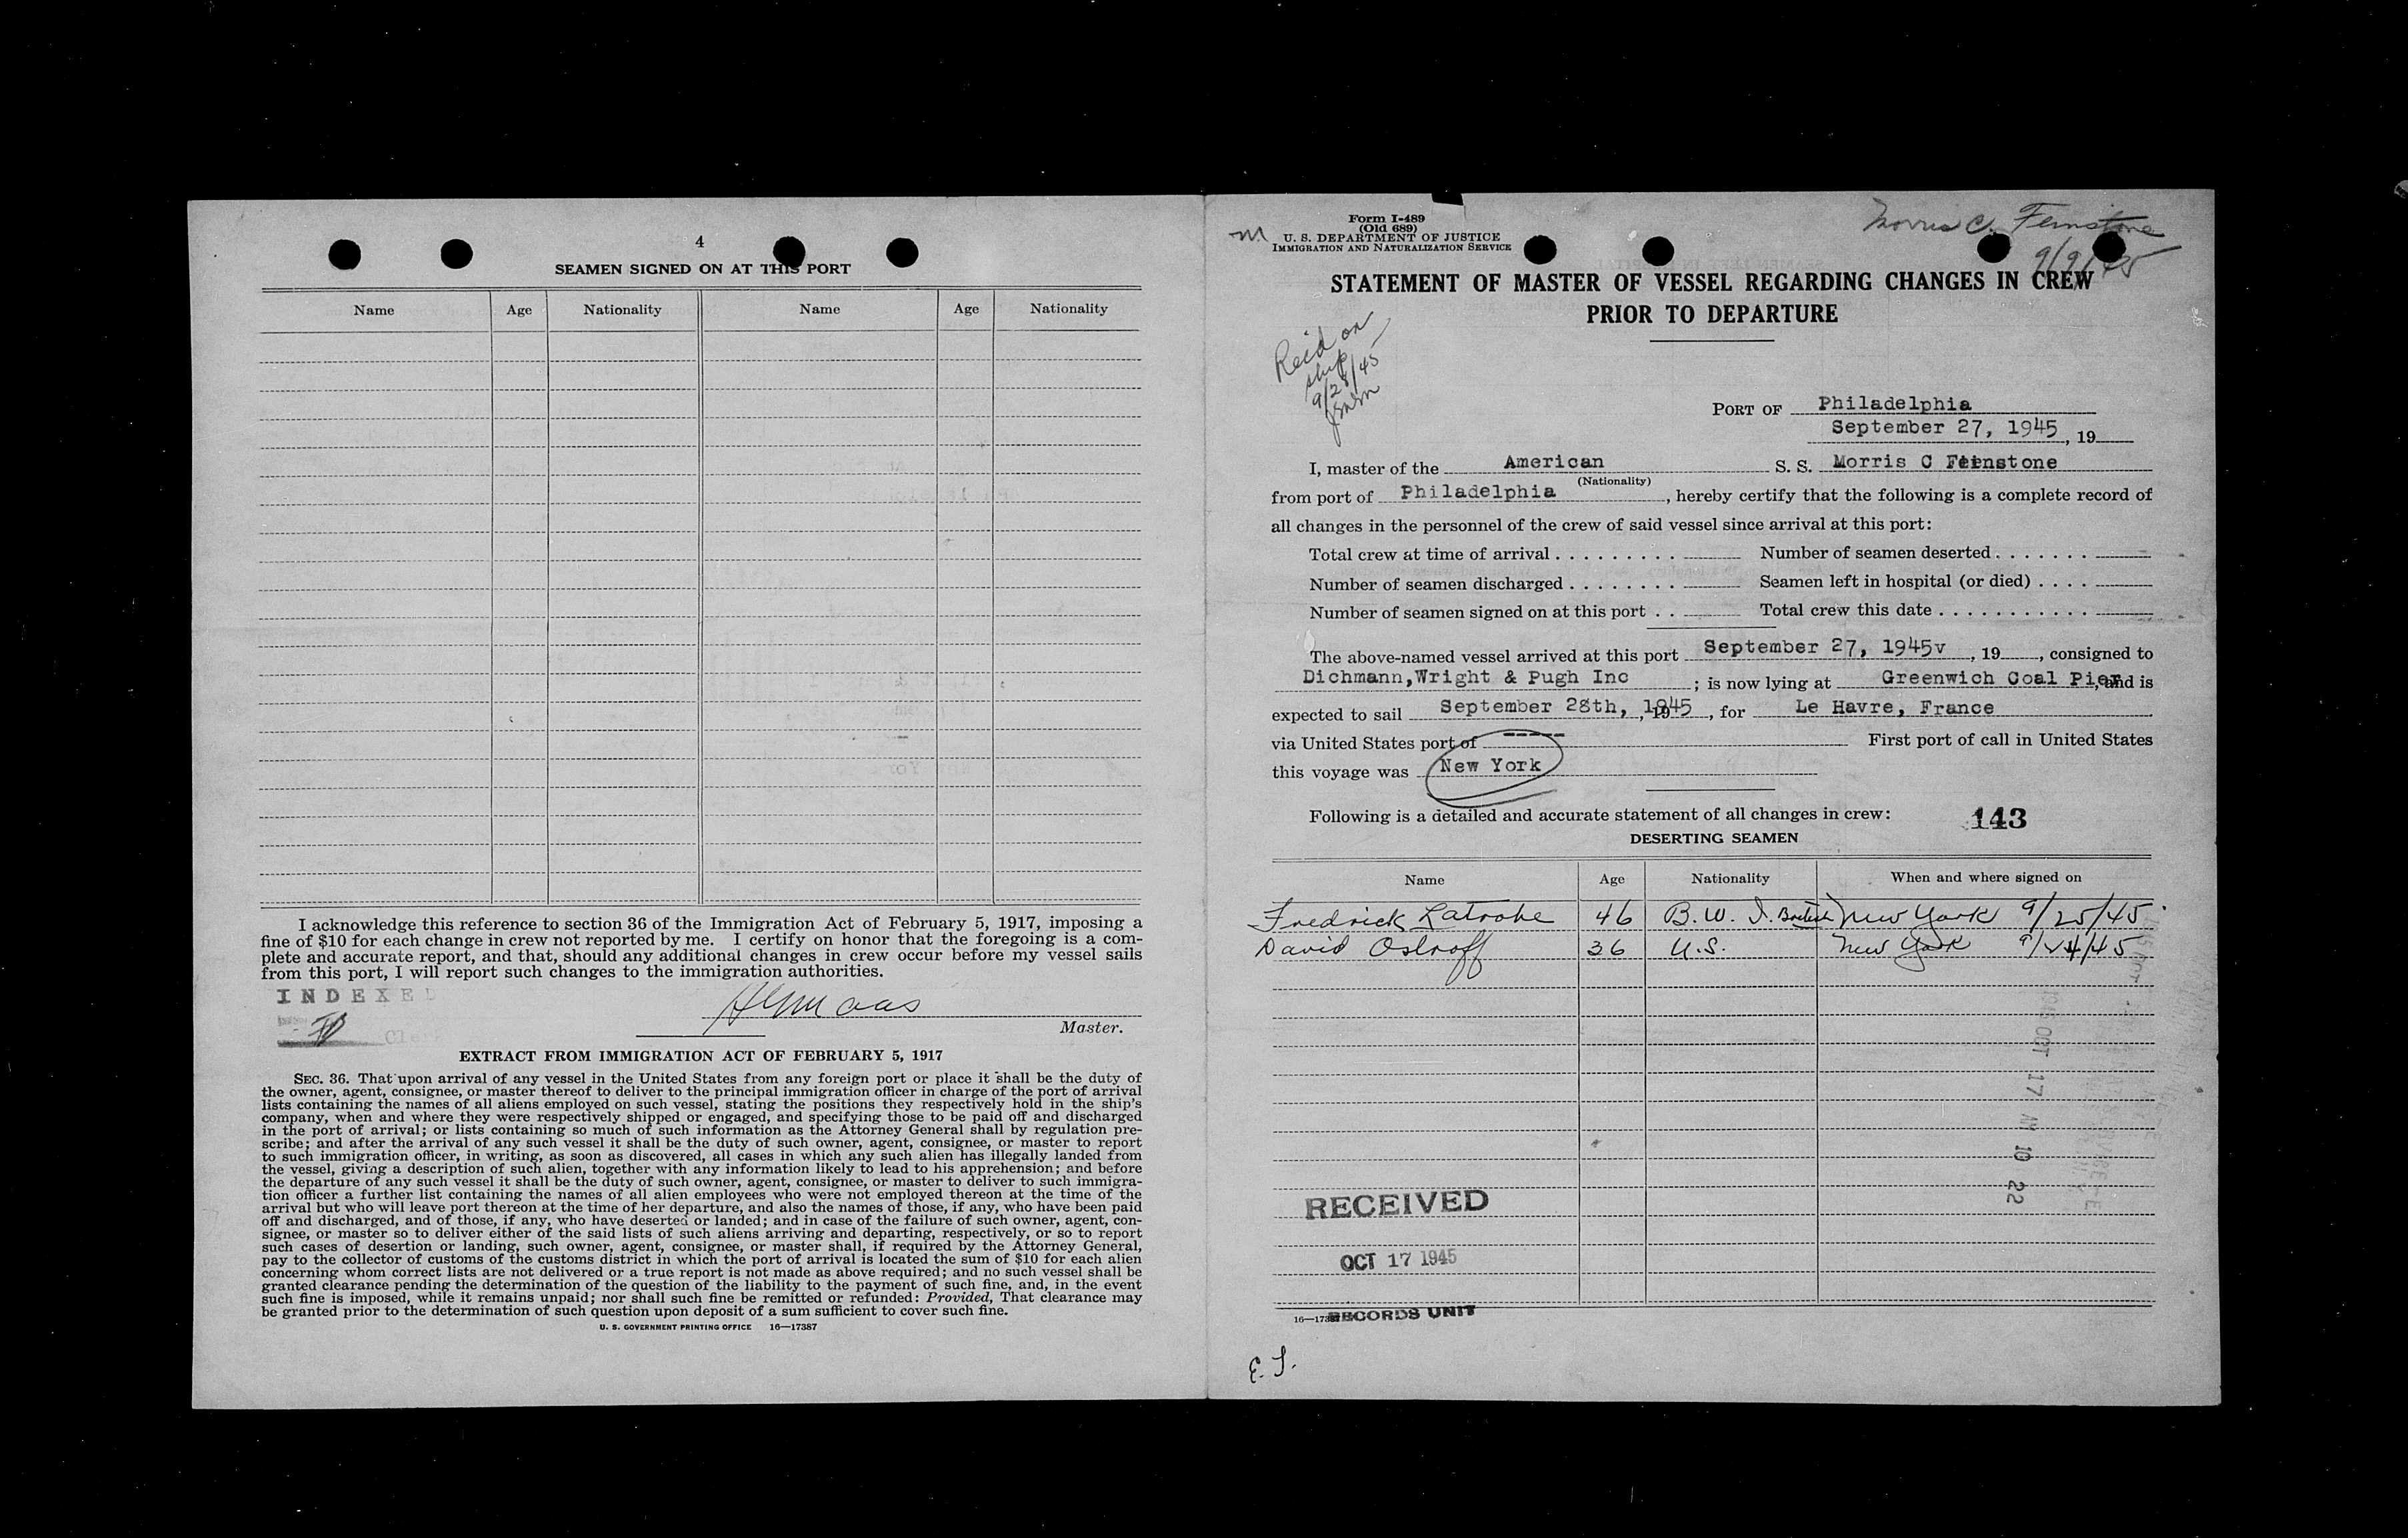 4
SEAMEN SIGNED ON AT THIS PORT
Name Age Nationality Name Age Nationality
I acknowledge this reference to section 36 of the Immigration Act of February 5, 1917, imposing a
fine of $10 for each change in crew not reported by me. I certify on honor that the foregoing is a com-
plete and accurate report, and that, should any additional changes in crew occur before my vessel sails
from this port, I will report such changes to the immigration authorities.
INDEXED
Clerk
Master.
EXTRACT FROM IMMIGRATION ACT OF FEBRUARY 5, 1917
SEC. 36. That upon arrival of any vessel in the United States from any foreign port or place it shall be the duty of
the owner, agent, consignee, or master thereof to deliver to the principal immigration officer in charge of the port of arrival
lists containing the names of all aliens employed on such vessel, stating the positions they respectively hold in the ship's
company, when and where they were respectively shipped or engaged, and specifying those to be paid off and discharged
in the port of arrival; or lists containing so much of such information as the Attorney General shall by regulation pre-
scribe; and after the arrival of any such vessel it shall be the duty of such owner, agent, consignee, or master to report
to such immigration officer, in writing, as soon as discovered, all cases in which any such alien has illegally landed from
the vessel, giving a description of such alien, together with any information likely to lead to his apprehension; and before
the departure of any such vessel it shall be the duty of such owner, agent, consignee, or master to deliver to such immigra-
tion officer a further list containing the names of all alien employees who were not employed thereon at the time of the
arrival but who will leave port thereon at the time of her departure, and also the names of those, if any, who have been paid
off and discharged, and of those, if any, who have deserted or landed; and in case of the failure of such owner, agent, con-
signee, or master so to deliver either of the said lists of such aliens arriving and departing, respectively, or so to report
such cases of desertion or landing, such owner, agent, consignee, or master shall, if required by the Attorney General,
pay to the collector of customs of the customs district in which the port of arrival is located the sum of $10 for each alien
concerning whom correct lists are not delivered or a true report is not made as above required; and no such vessel shall be
granted clearance pending the determination of the question of the liability to the payment of such fine, and, in the event
such fine is imposed, while it remains unpaid; nor shall such fine be remitted or refunded: Provided, That clearance may
be granted prior to the determination of such question upon deposit of a sum sufficient to cover such fine.
U. S. GOVERNMENT PRINTING OFFICE 16—17387
Form I-489
(Old 689)
U. S. DEPARTMENT OF JUSTICE
IMMIGRATION AND NATURALIZATION SERVICE
m
Morris C. Feinstone
9/9/45
STATEMENT OF MASTER OF VESSEL REGARDING CHANGES IN CREW
PRIOR TO DEPARTURE
Reid on
ship
9/28/45
PORT OF Philadelphia
September 27, 1945, 19
I, master of the American S. S. Morris C Feinstone
(Nationality)
from port of Philadelphia, hereby certify that the following is a complete record of
all changes in the personnel of the crew of said vessel since arrival at this port:
Total crew at time of arrival . . . . . . . . . Number of seamen deserted . . . . . . .
Number of seamen discharged . . . . . . . . Seamen left in hospital (or died) . . . .
Number of seamen signed on at this port . . Total crew this date . . . . . . . . . . .
The above-named vessel arrived at this port September 27, 1945v, 19, consigned to
Dichmann,Wright & Pugh Inc; is now lying at Greenwich Coal Pier, and is
expected to sail September 28th, 1945, 19, for Le Havre, France
via United States port of ----- First port of call in United States
this voyage was New York
Following is a detailed and accurate statement of all changes in crew: 143
DESERTING SEAMEN
Name Age Nationality When and where signed on
Fredrick Latrobe 46 B. W. I. British New York 9/25/45
David Ostroff 36 U.S. New York 9/24/45
1945 OCT 17 AM 10 22
RECEIVED
OCT 17 1945
RECORDS UNIT
16—17387